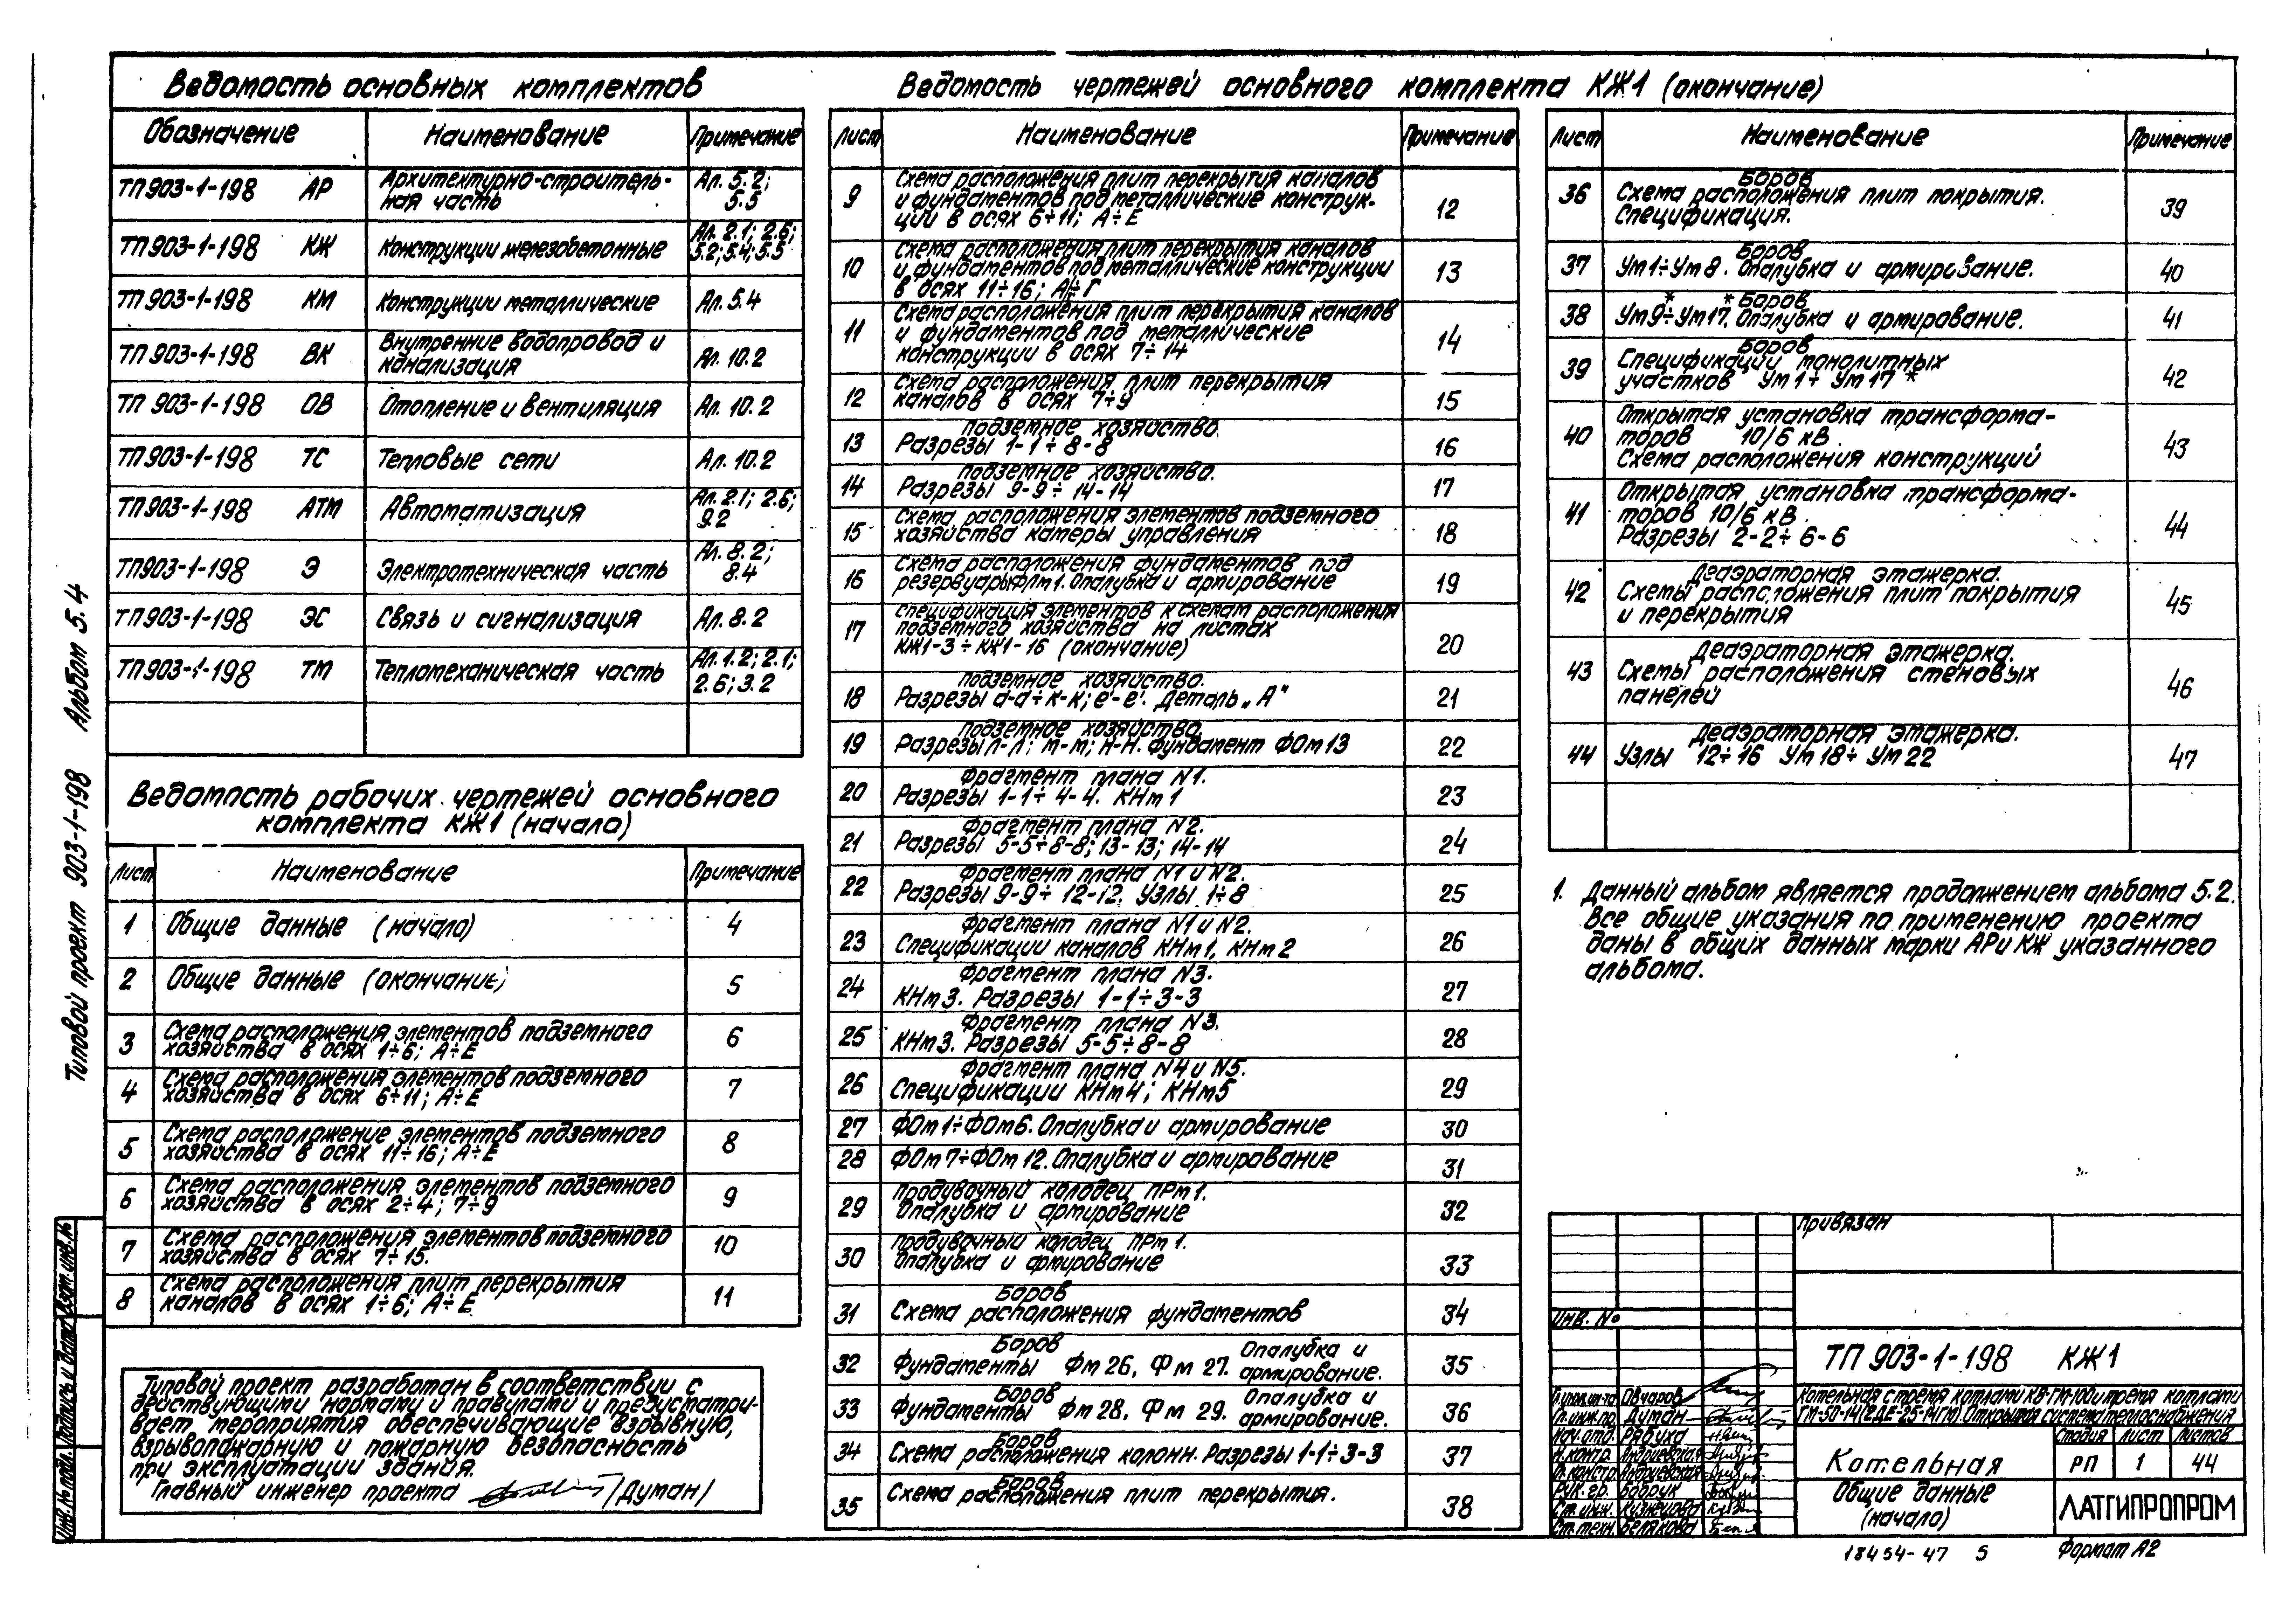 Ведомость основных комплектов
Обозначение Наименование Примечание
ТП 903-1-198 АР Архитектурно-строитель-
ная часть Ал. 5.2;
5.5
ТП 903-1-198 КЖ Конструкции железобетонные Ал. 2.1; 2.6;
5.2; 5.4; 5.5
ТП 903-1-198 КМ Конструкции металлические Ал. 5.4
ТП 903-1-198 ВК Внутренние водопровод и
канализация Ал. 10.2
ТП 903-1-198 ОВ Отопление и вентиляция Ал. 10.2
ТП 903-1-198 ТС Тепловые сети Ал. 10.2
ТП 903-1-198 АТМ Автоматизация Ал. 2.1; 2.6;
9.2
ТП 903-1-198 Э Электротехническая часть Ал. 8.2;
8.4
ТП 903-1-198 ЭС Связь и сигнализация Ал. 8.2
ТП 903-1-198 ТМ Тепломеханическая часть Ал. 1.2; 2.1;
2.6; 3.2
Ведомость рабочих чертежей основного
комплекта КЖ1 (начало)
Лист Наименование Примечание
1 Общие данные (начало) 4
2 Общие данные (окончание) 5
3 Схема расположения элементов подземного
хозяйства в осях 1÷6; А÷Е 6
4 Схема расположения элементов подземного
хозяйства в осях 6÷11; А÷Е 7
5 Схема расположение элементов подземного
хозяйства в осях 11÷16; А÷Е 8
6 Схема расположения элементов подземного
хозяйства в осях 2÷4; 7÷9 9
7 Схема расположения элементов подземного
хозяйства в осях 7÷15. 10
8 Схема расположения плит перекрытия
каналов в осях 1÷6; А÷Е 11
Типовой проект разработан в соответствии с
действующими нормами и правилами и предусматри-
вает мероприятия обеспечивающие взрывную,
взрывопожарную и пожарную безопасность
при эксплуатации здания.
Главный инженер проекта /Думан/
Ведомость чертежей основного комплекта КЖ1 (окончание)
Лист Наименование Примечание
9 Схема расположения плит перекрытия каналов
и фундаментов под металлические конструк-
ции в осях 6÷11; А÷Е 12
10 Схема расположения плит перекрытия каналов
и фундаментов под металлические конструкции
в осях 11÷16; А÷Г 13
11 Схема расположения плит перекрытия каналов
и фундаментов под металлические
конструкции в осях 7÷14 14
12 Схема расположения плит перекрытия
каналов в осях 7÷9 15
13 Подземное хозяйство.
Разрезы 1-1÷8-8 16
14 Подземное хозяйство.
Разрезы 9-9÷14-14 17
15 Схема расположения элементов подземного
хозяйства камеры управления 18
16 Схема расположения фундаментов под
резервуары ФЛм1. Опалубка и армирование 19
17 Спецификация элементов к схемам расположения
подземного хозяйства на листах
КЖ1-3÷КЖ1-16 (окончание) 20
18 Подземное хозяйство.
Разрезы а-а÷к-к; е'-е'. Деталь „А" 21
19 Подземное хозяйство.
Разрезы л-л; м-м; н-н. Фундамент ФОм13 22
20 Фрагмент плана N1.
Разрезы 1-1÷4-4. КНм1 23
21 Фрагмент плана N2.
Разрезы 5-5÷8-8; 13-13; 14-14 24
22 Фрагмент плана N1 и N2.
Разрезы 9-9÷12-12. Узлы 1÷8 25
23 Фрагмент плана N1 и N2.
Спецификации каналов КНм1, КНм2 26
24 Фрагмент плана N3.
КНм3. Разрезы 1-1÷3-3 27
25 Фрагмент плана N3.
КНм3. Разрезы 5-5÷8-8 28
26 Фрагмент плана N4 и N5.
Спецификации КНм4; КНм5 29
27 ФОм1÷ФОм6. Опалубка и армирование 30
28 ФОм7÷ФОм12. Опалубка и армирование 31
29 Продувочный колодец ПРм1.
Опалубка и армирование 32
30 Продувочный колодец ПРм1.
Опалубка и армирование 33
31 Боров
Схема расположения фундаментов 34
32 Боров
Фундаменты Фм26, Фм27. Опалубка и
армирование. 35
33 Боров
Фундаменты Фм28, Фм29. Опалубка и
армирование. 36
34 Боров
Схема расположения колонн. Разрезы 1-1÷3-3 37
35 Боров
Схема расположения плит перекрытия. 38
Лист Наименование Примечание
36 Боров
Схема расположения плит покрытия.
Спецификация. 39
37 Боров
Ум1÷Ум8. Опалубка и армирование. 40
38 Боров
Ум9*÷Ум17*. Опалубка и армирование. 41
39 Боров
Спецификации монолитных
участков Ум1÷Ум17* 42
40 Открытая установка трансформа-
торов 10/6 кВ.
Схема расположения конструкций 43
41 Открытая установка трансформа-
торов 10/6 кВ.
Разрезы 2-2÷6-6 44
42 Деаэраторная этажерка.
Схемы расположения плит покрытия
и перекрытия 45
43 Деаэраторная этажерка.
Схемы расположения стеновых
панелей 46
44 Деаэраторная этажерка.
Узлы 12÷16 Ум18÷Ум22 47
1. Данный альбом является продолжением альбома 5.2.
Все общие указания по применению проекта
даны в общих данных марки АР и КЖ указанного
альбома.
Привязан
Инв. №
ТП 903-1-198 КЖ1
Гл.инж.ин-та Овчаров
Гл.инж.пр. Думан
Нач.отд. Рябуха
Н.контр. Андриевская
Гл.констр. Андриевская
Рук.гр. Бобрук
Ст.инж. Кузнецова
Ст.техн. Белякова
Котельная с тремя котлами КВ-ГМ-100 и тремя котлами
ГМ-50-14 (2ДЕ-25-14ГМ). Открытая система теплоснабжения
Котельная
Стадия Лист Листов
РП 1 44
Общие данные
(начало)
ЛАТГИПРОПРОМ
18454-47 5 Формат А2
Типовой проект 903-1-198 Альбом 5.4
Инв.№ подл. Подпись и дата Взам.инв.№